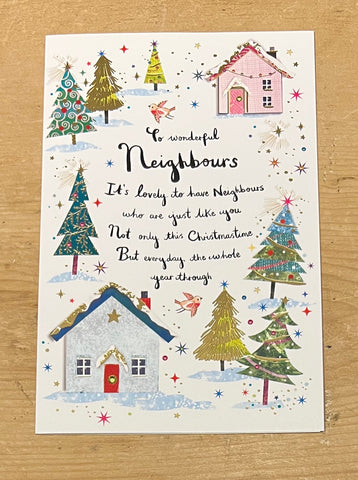 To wonderful
Neighbours
It's lovely to have Neighbours
who are just like you
Not only this Christmastime
But everyday the whole
year through